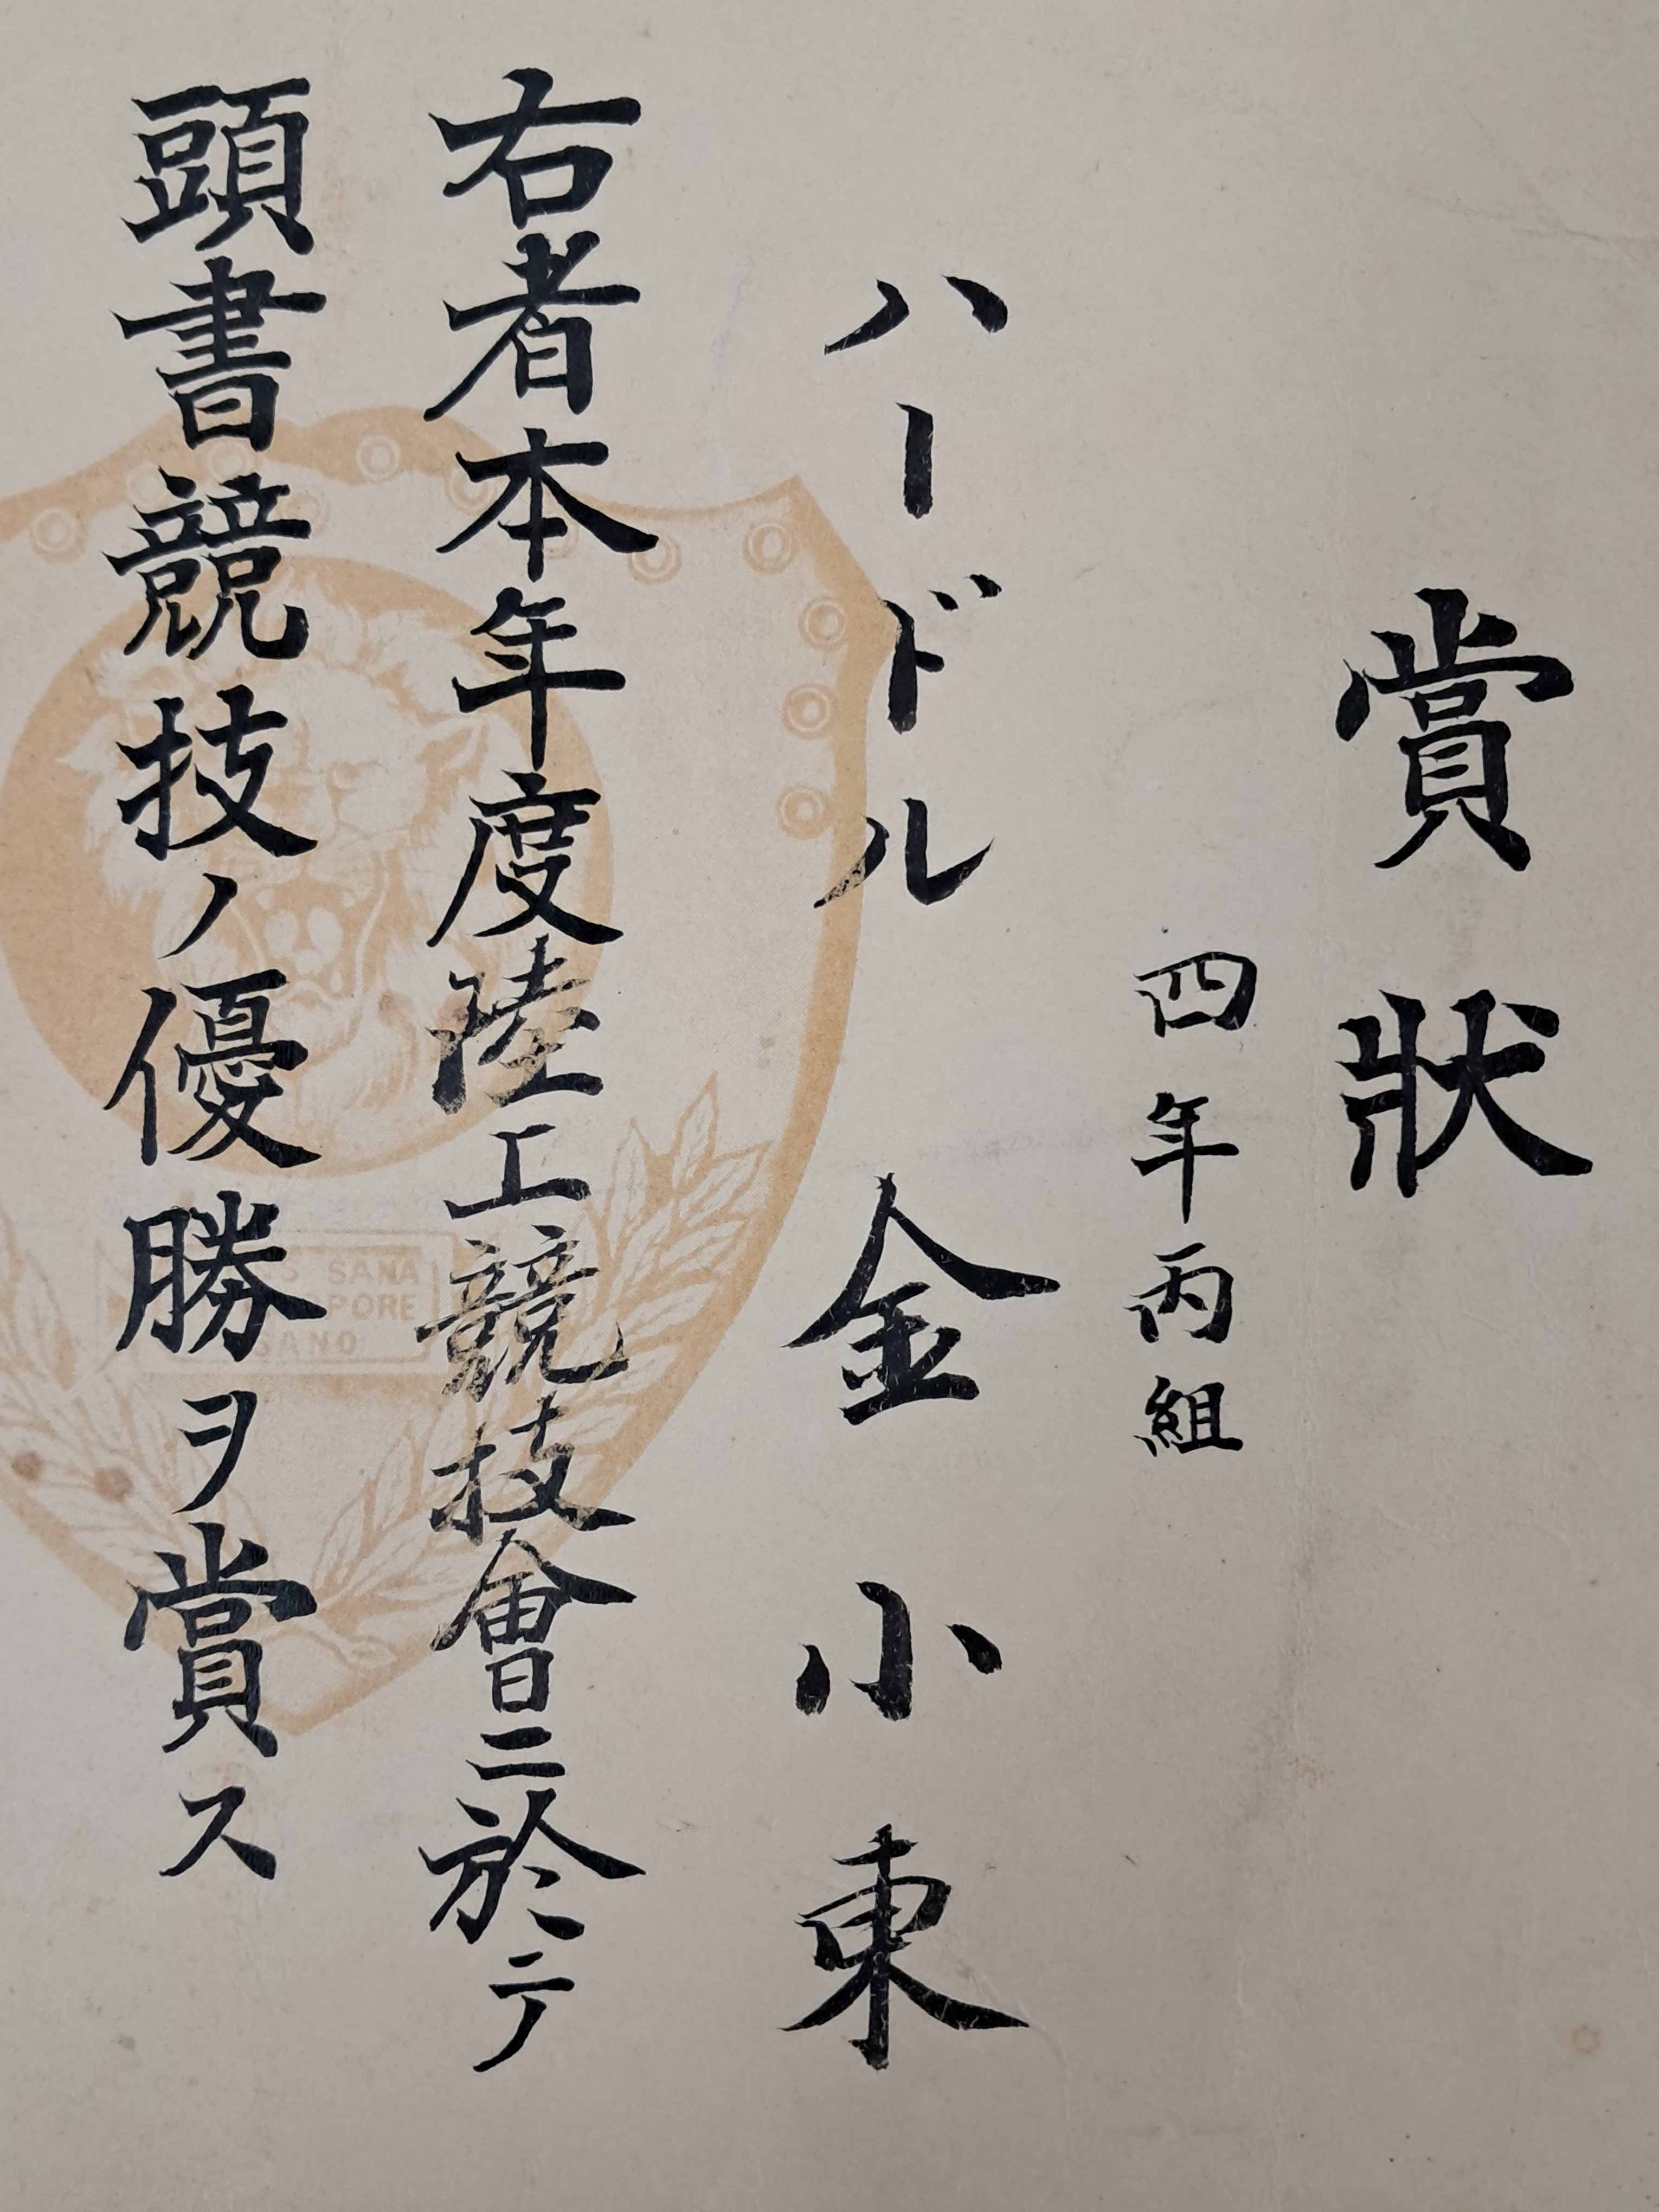 賞狀
四年丙組
ハードル 金小東
右者本年度陸上競技會ニ於テ
頭書競技ノ優勝ヲ賞ス
SANA
PORE
SANO